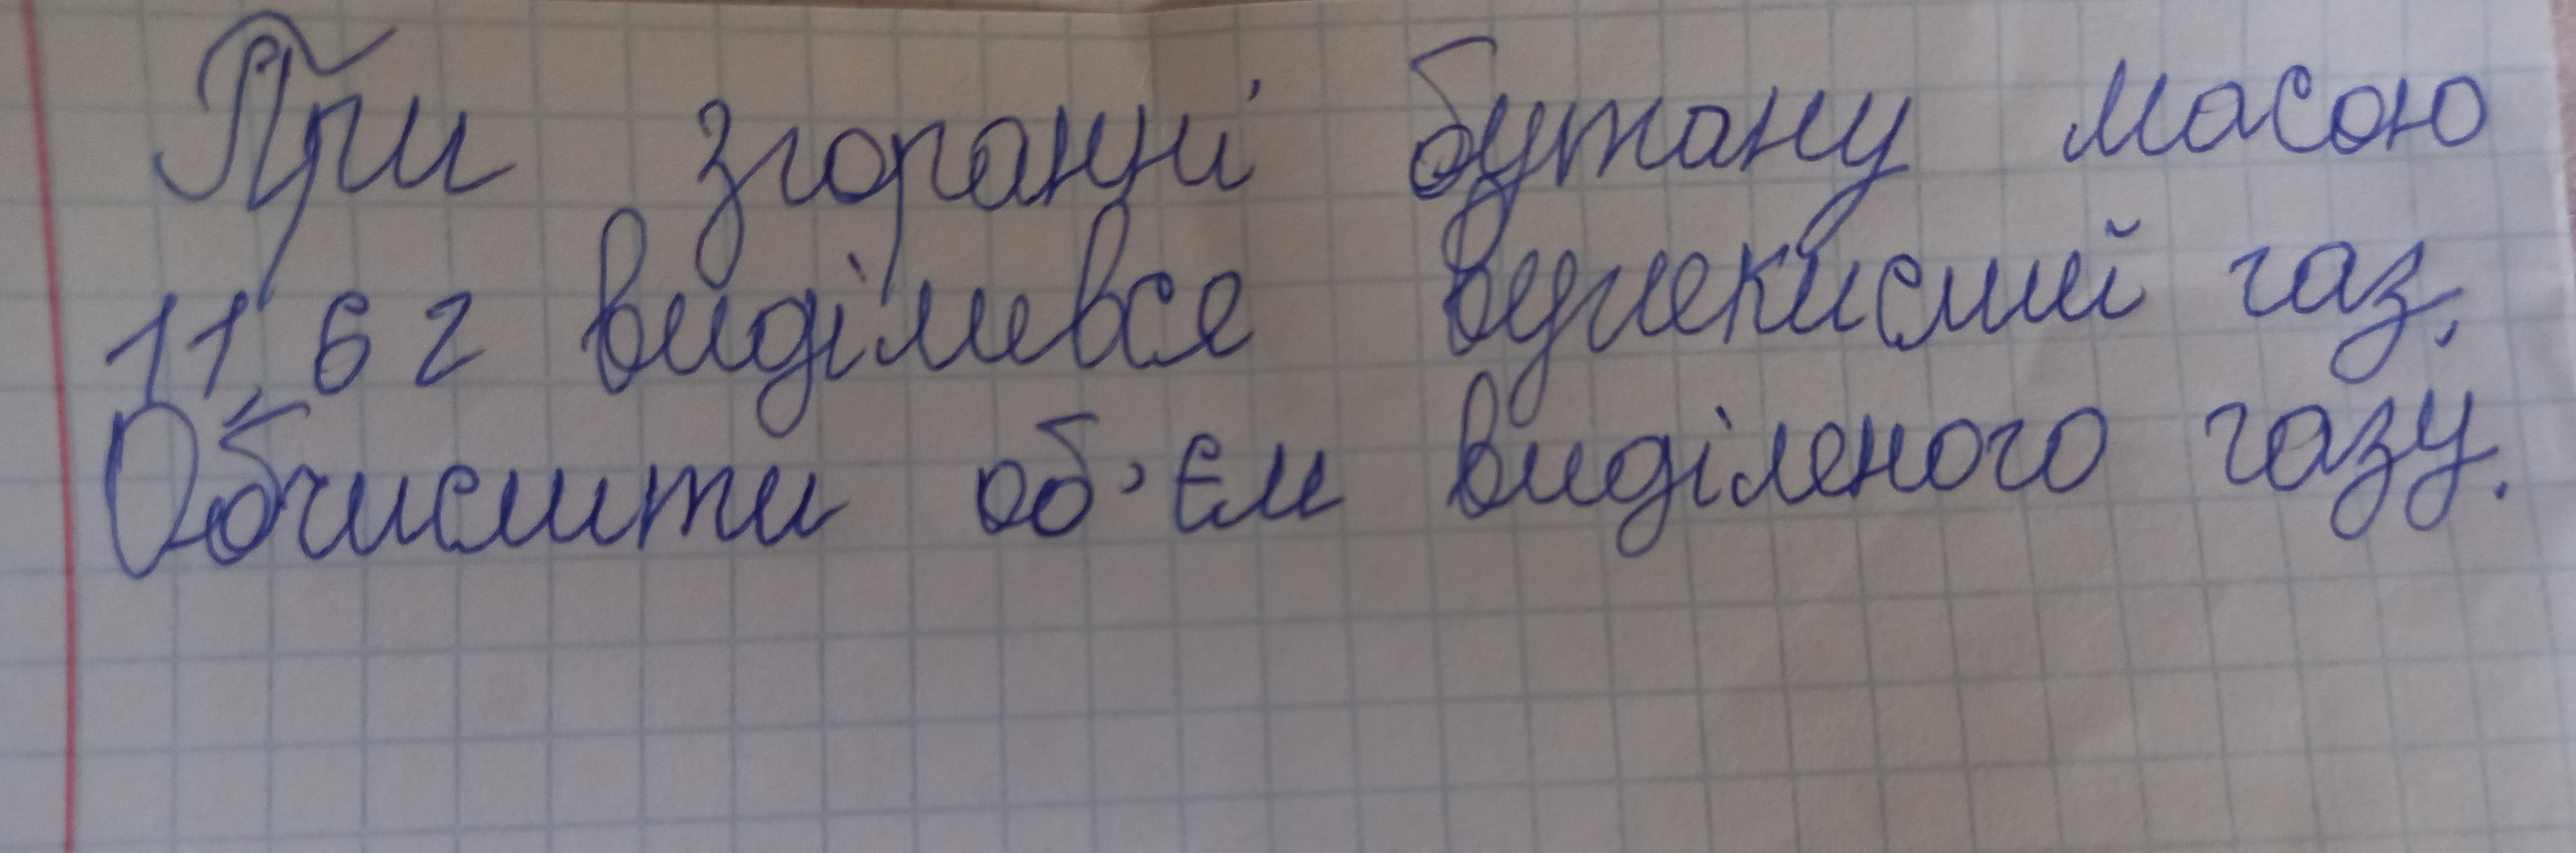 При згоранні бутану масою
11,6 г виділився вуглекислий газ.
Обчислити об'єм виділеного газу.